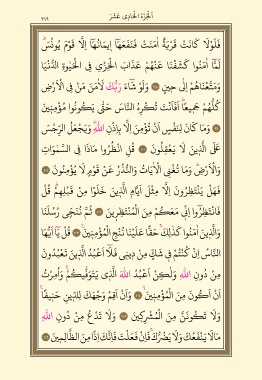 اَلْجُزْءُ الْحَادِى عَشَرَ
٢١٩
فَلَوْلَا كَانَتْ قَرْيَةٌ اٰمَنَتْ فَنَفَعَهَٓا ا۪يمَانُهَٓا اِلَّا قَوْمَ يُونُسَۜ
لَمَّٓا اٰمَنُوا كَشَفْنَا عَنْهُمْ عَذَابَ الْخِزْىِ فِى الْحَيٰوةِ الدُّنْيَا
وَمَتَّعْنَاهُمْ اِلٰى ح۪ينٍ ۝ وَلَوْ شَٓاءَ رَبُّكَ لَاٰمَنَ مَنْ فِى الْاَرْضِ
كُلُّهُمْ جَم۪يعًاۜ اَفَاَنْتَ تُكْرِهُ النَّاسَ حَتّٰى يَكُونُوا مُؤْمِن۪ينَ
۝ وَمَا كَانَ لِنَفْسٍ اَنْ تُؤْمِنَ اِلَّا بِاِذْنِ اللّٰهِۜ وَيَجْعَلُ الرِّجْسَ
عَلَى الَّذ۪ينَ لَا يَعْقِلُونَ ۝ قُلِ انْظُرُوا مَاذَا فِى السَّمٰوَاتِ
وَالْاَرْضِۜ وَمَا تُغْنِى الْاٰيَاتُ وَالنُّذُرُ عَنْ قَوْمٍ لَا يُؤْمِنُونَ ۝
فَهَلْ يَنْتَظِرُونَ اِلَّا مِثْلَ اَيَّامِ الَّذ۪ينَ خَلَوْا مِنْ قَبْلِهِمْۜ قُلْ
فَانْتَظِرُٓوا اِنّ۪ى مَعَكُمْ مِنَ الْمُنْتَظِر۪ينَ ۝ ثُمَّ نُنَجّ۪ى رُسُلَنَا
وَالَّذ۪ينَ اٰمَنُوا كَذٰلِكَۚ حَقًّا عَلَيْنَا نُنْجِ الْمُؤْمِن۪ينَ۟ ۝ قُلْ يَٓا اَيُّهَا
النَّاسُ اِنْ كُنْتُمْ ف۪ى شَكٍّ مِنْ د۪ين۪ى فَلَٓا اَعْبُدُ الَّذ۪ينَ تَعْبُدُونَ
مِنْ دُونِ اللّٰهِ وَلٰكِنْ اَعْبُدُ اللّٰهَ الَّذ۪ى يَتَوَفّٰيكُمْۚ وَاُمِرْتُ
اَنْ اَكُونَ مِنَ الْمُؤْمِن۪ينَۙ ۝ وَاَنْ اَقِمْ وَجْهَكَ لِلدّ۪ينِ حَن۪يفًاۚ
وَلَا تَكُونَنَّ مِنَ الْمُشْرِك۪ينَ ۝ وَلَا تَدْعُ مِنْ دُونِ اللّٰهِ
مَالَا يَنْفَعُكَ وَلَا يَضُرُّكَۚ فَاِنْ فَعَلْتَ فَاِنَّكَ اِذًا مِنَ الظَّالِم۪ينَ ۝